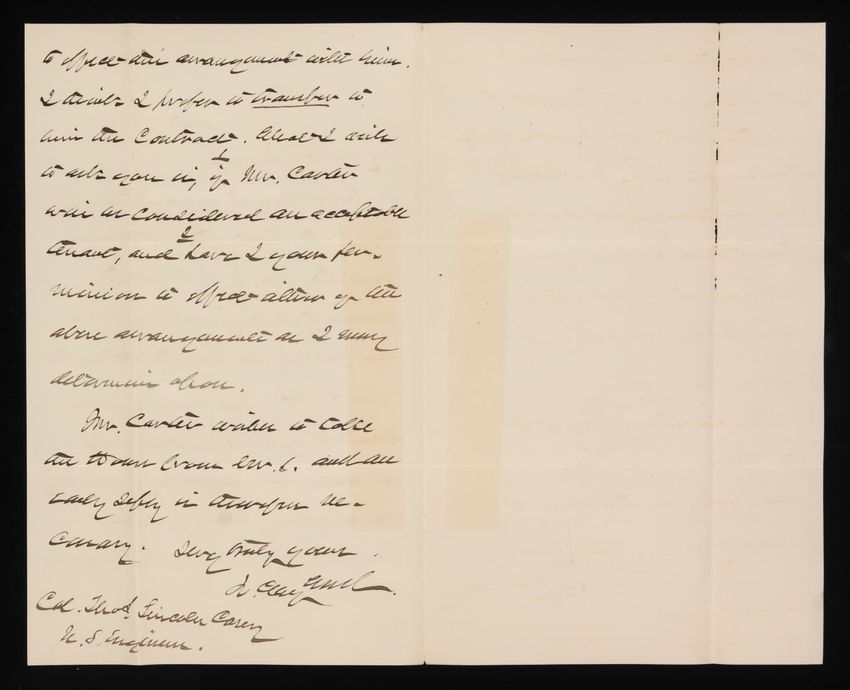 to effect this arrangement with him.
I think I prefer to transfer to
him the Contract. What I wish
to ask you is, 1 if Mr. Carter
will be considered an acceptable
tenant, and 2 have I your per-
mission to effect either of the
above arrangements as I may
determine upon.
Mr. Carter wishes to take
the House from
early reply is therefore ne-
cessary. Very truly yours,
Col. Thos. Lincoln Casey
U. S. Engineers.